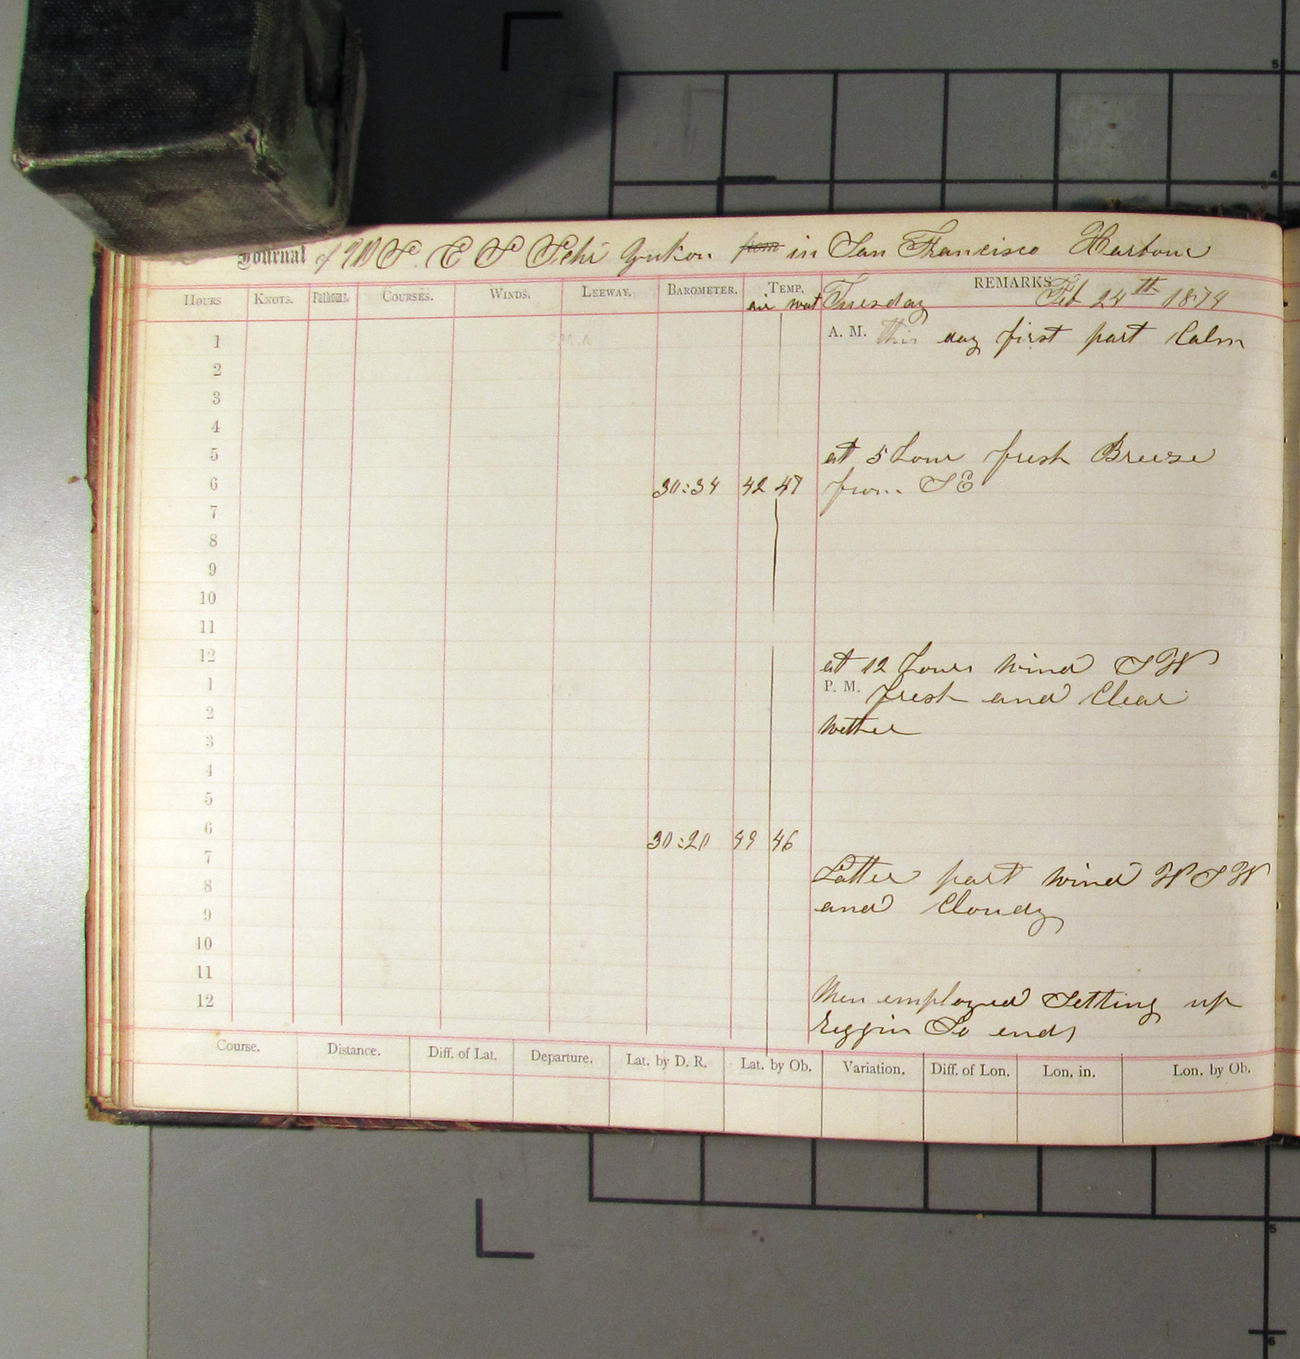 Journal of U S C S Schr Yukon from in San Francisco Harbour
HOURS KNOTS. Fathoms. COURSES. WINDS. LEEWAY. BAROMETER. TEMP. REMARKS
air wat Tuesday Feb 24th 1874
1 A. M. this day first part Calm
2
3
4
5 at 5 hour fresh Breese
6 30:34 42 47 from SE
7
8
9
10
11
12 at 12 hours wind SW
1 P. M. fresh and Clear
2 wether
3
4
5
6 30:20 49 46
7
8 Latter part wind WSW
9 and Cloudy
10
11
12 Men employed Setting up
Riggin So ends
Course. Distance. Diff. of Lat. Departure. Lat. by D. R. Lat. by Ob. Variation. Diff. of Lon. Lon. in. Lon. by Ob.
5
4
5
6